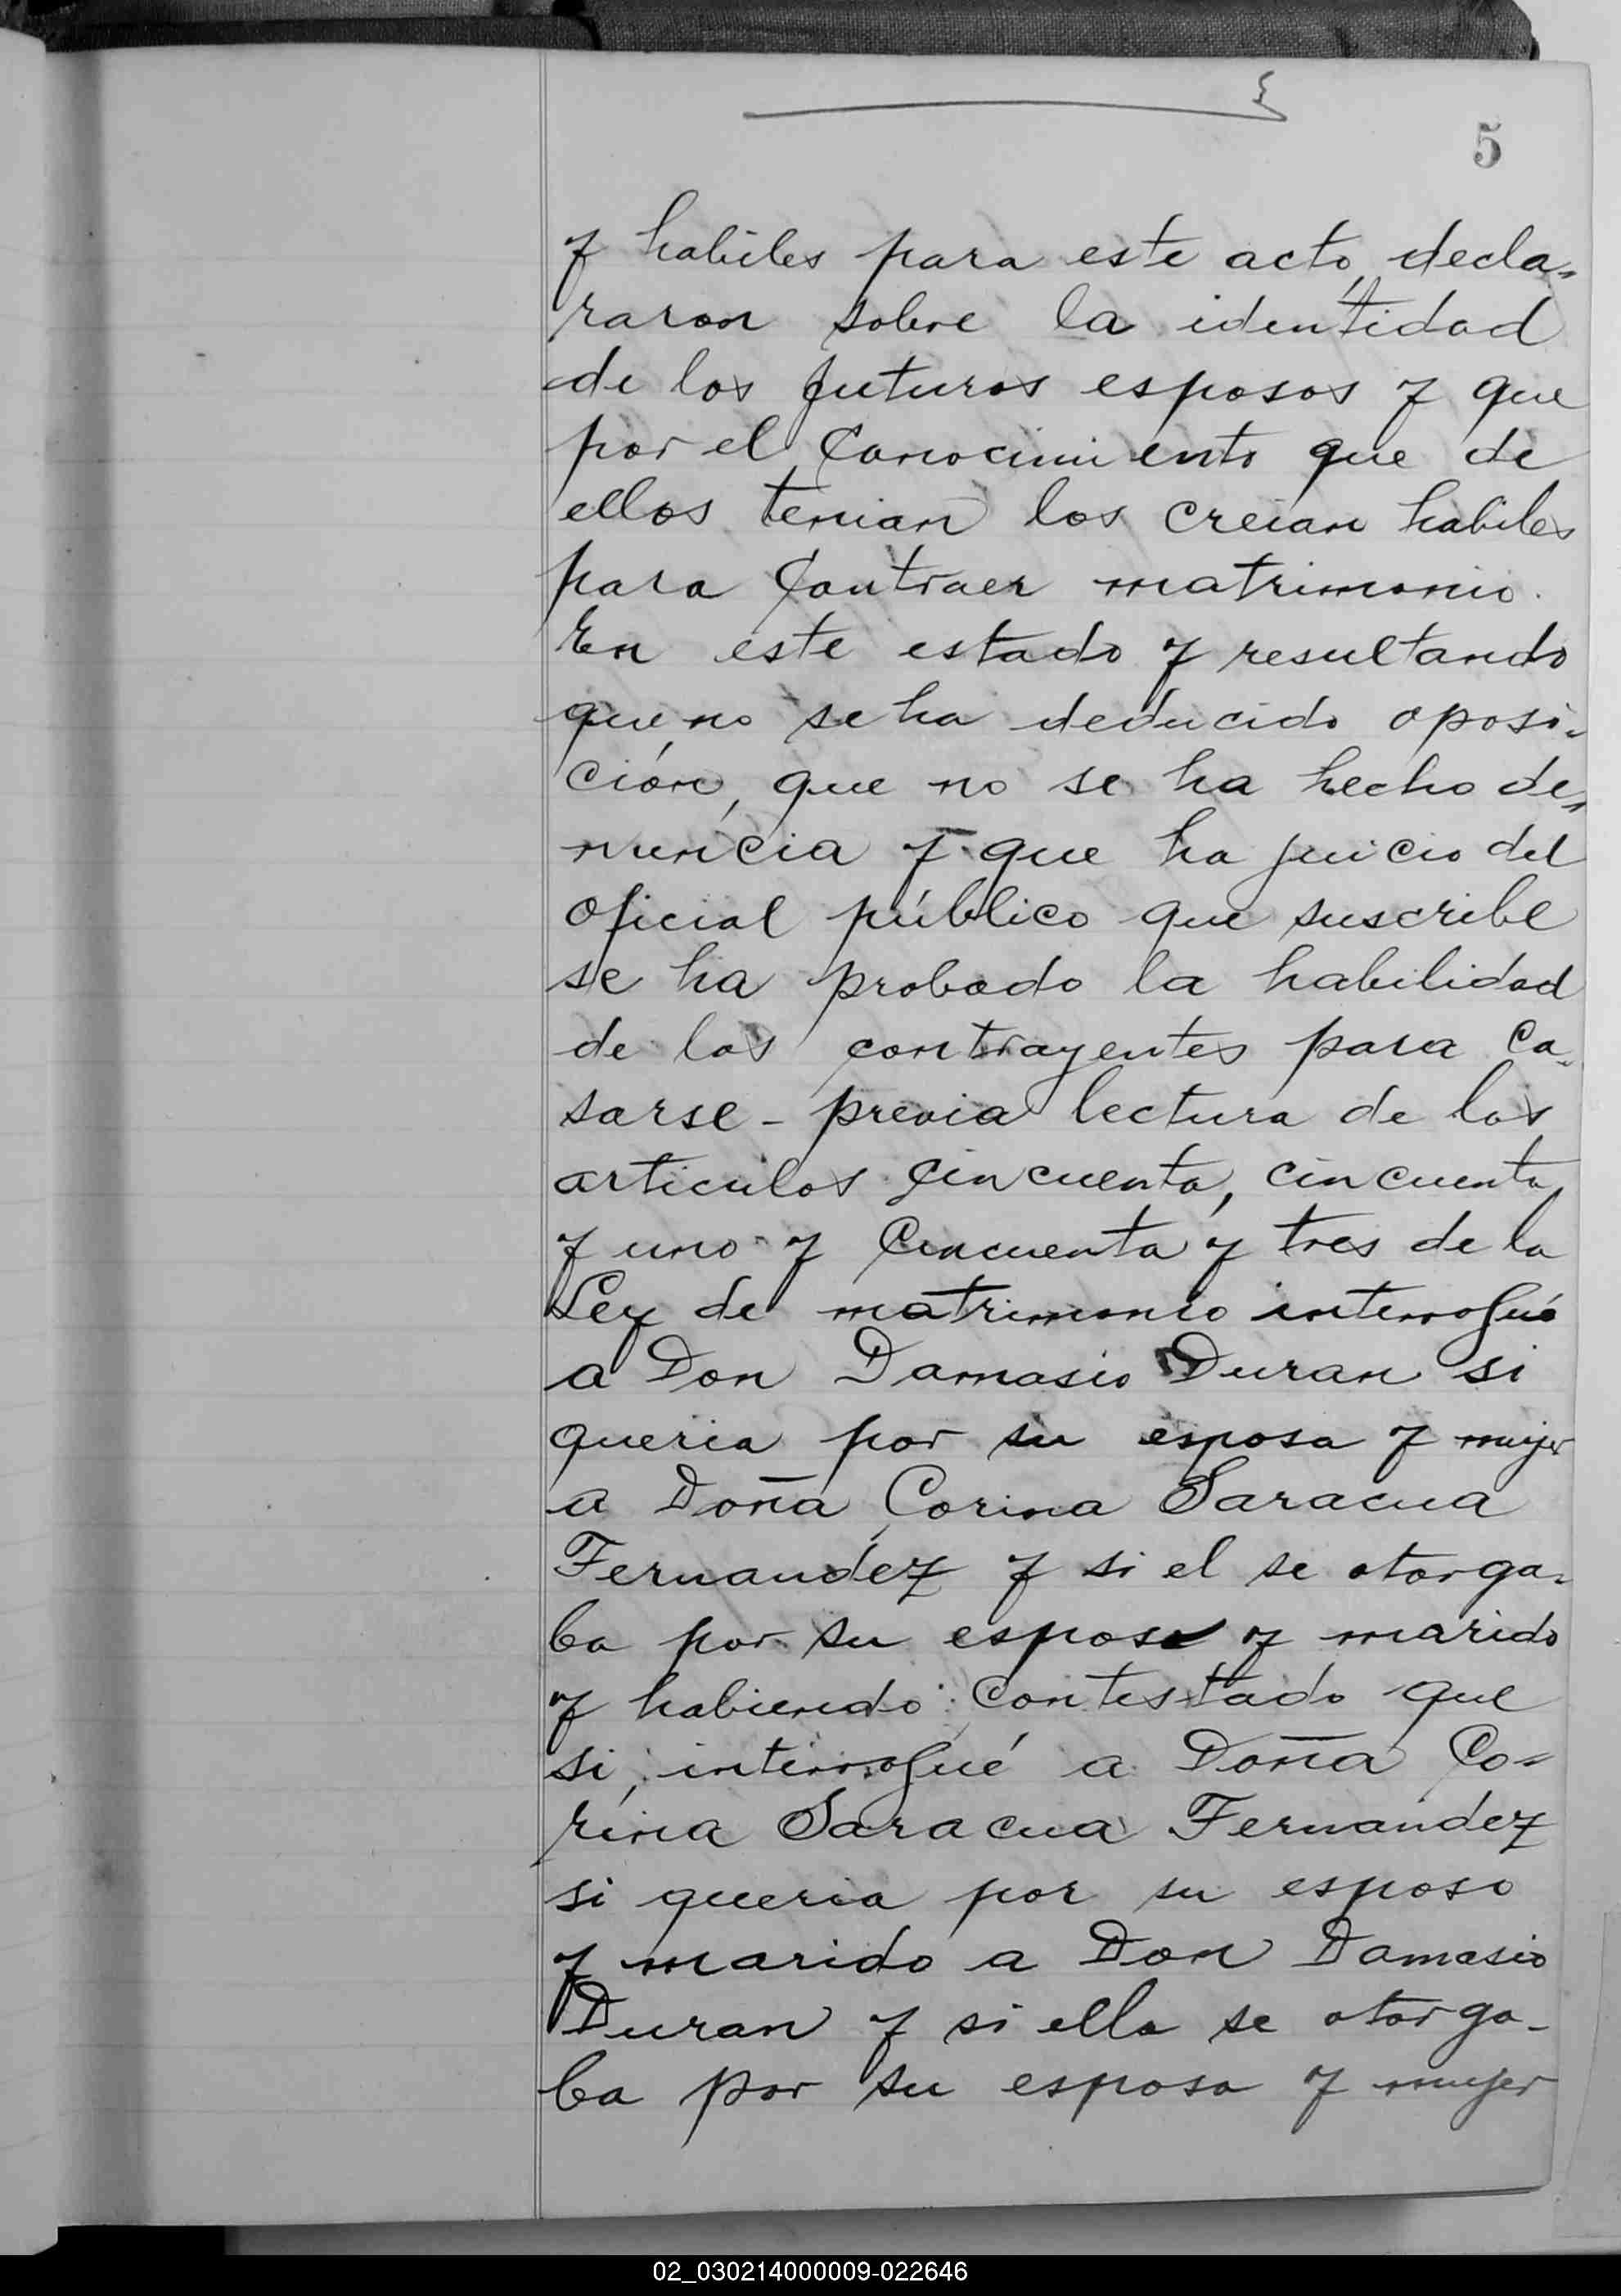 5
y habiles para este acto, decla-
raron sobre la identidad
de los futuros esposos y que
por el conocimiento que de
ellos tenian los creian habiles
para contraer matrimonio.
En este estado y resultando
que no se ha deducido oposi-
ción, que no se ha hecho de-
nuncia y que ha juicio del
oficial público que suscribe
se ha probado la habilidad
de los contrayentes para ca-
sarse - previa lectura de los
articulos cincuenta, cincuenta
y uno y cincuenta y tres de la
Ley de matrimonio interrogué
a Don Damasio Duran si
queria por su esposa y mujer
a Doña Corina Saracua
Fernandez y si el se otorga-
ba por su esposo y marido
y habiendo contestado que
si, interrogué a Doña Co-
rina Saracua Fernandez
si queria por su esposo
y marido a Don Damasio
Duran y si ella se otorga-
ba por su esposa y mujer
02_030214000009-022646